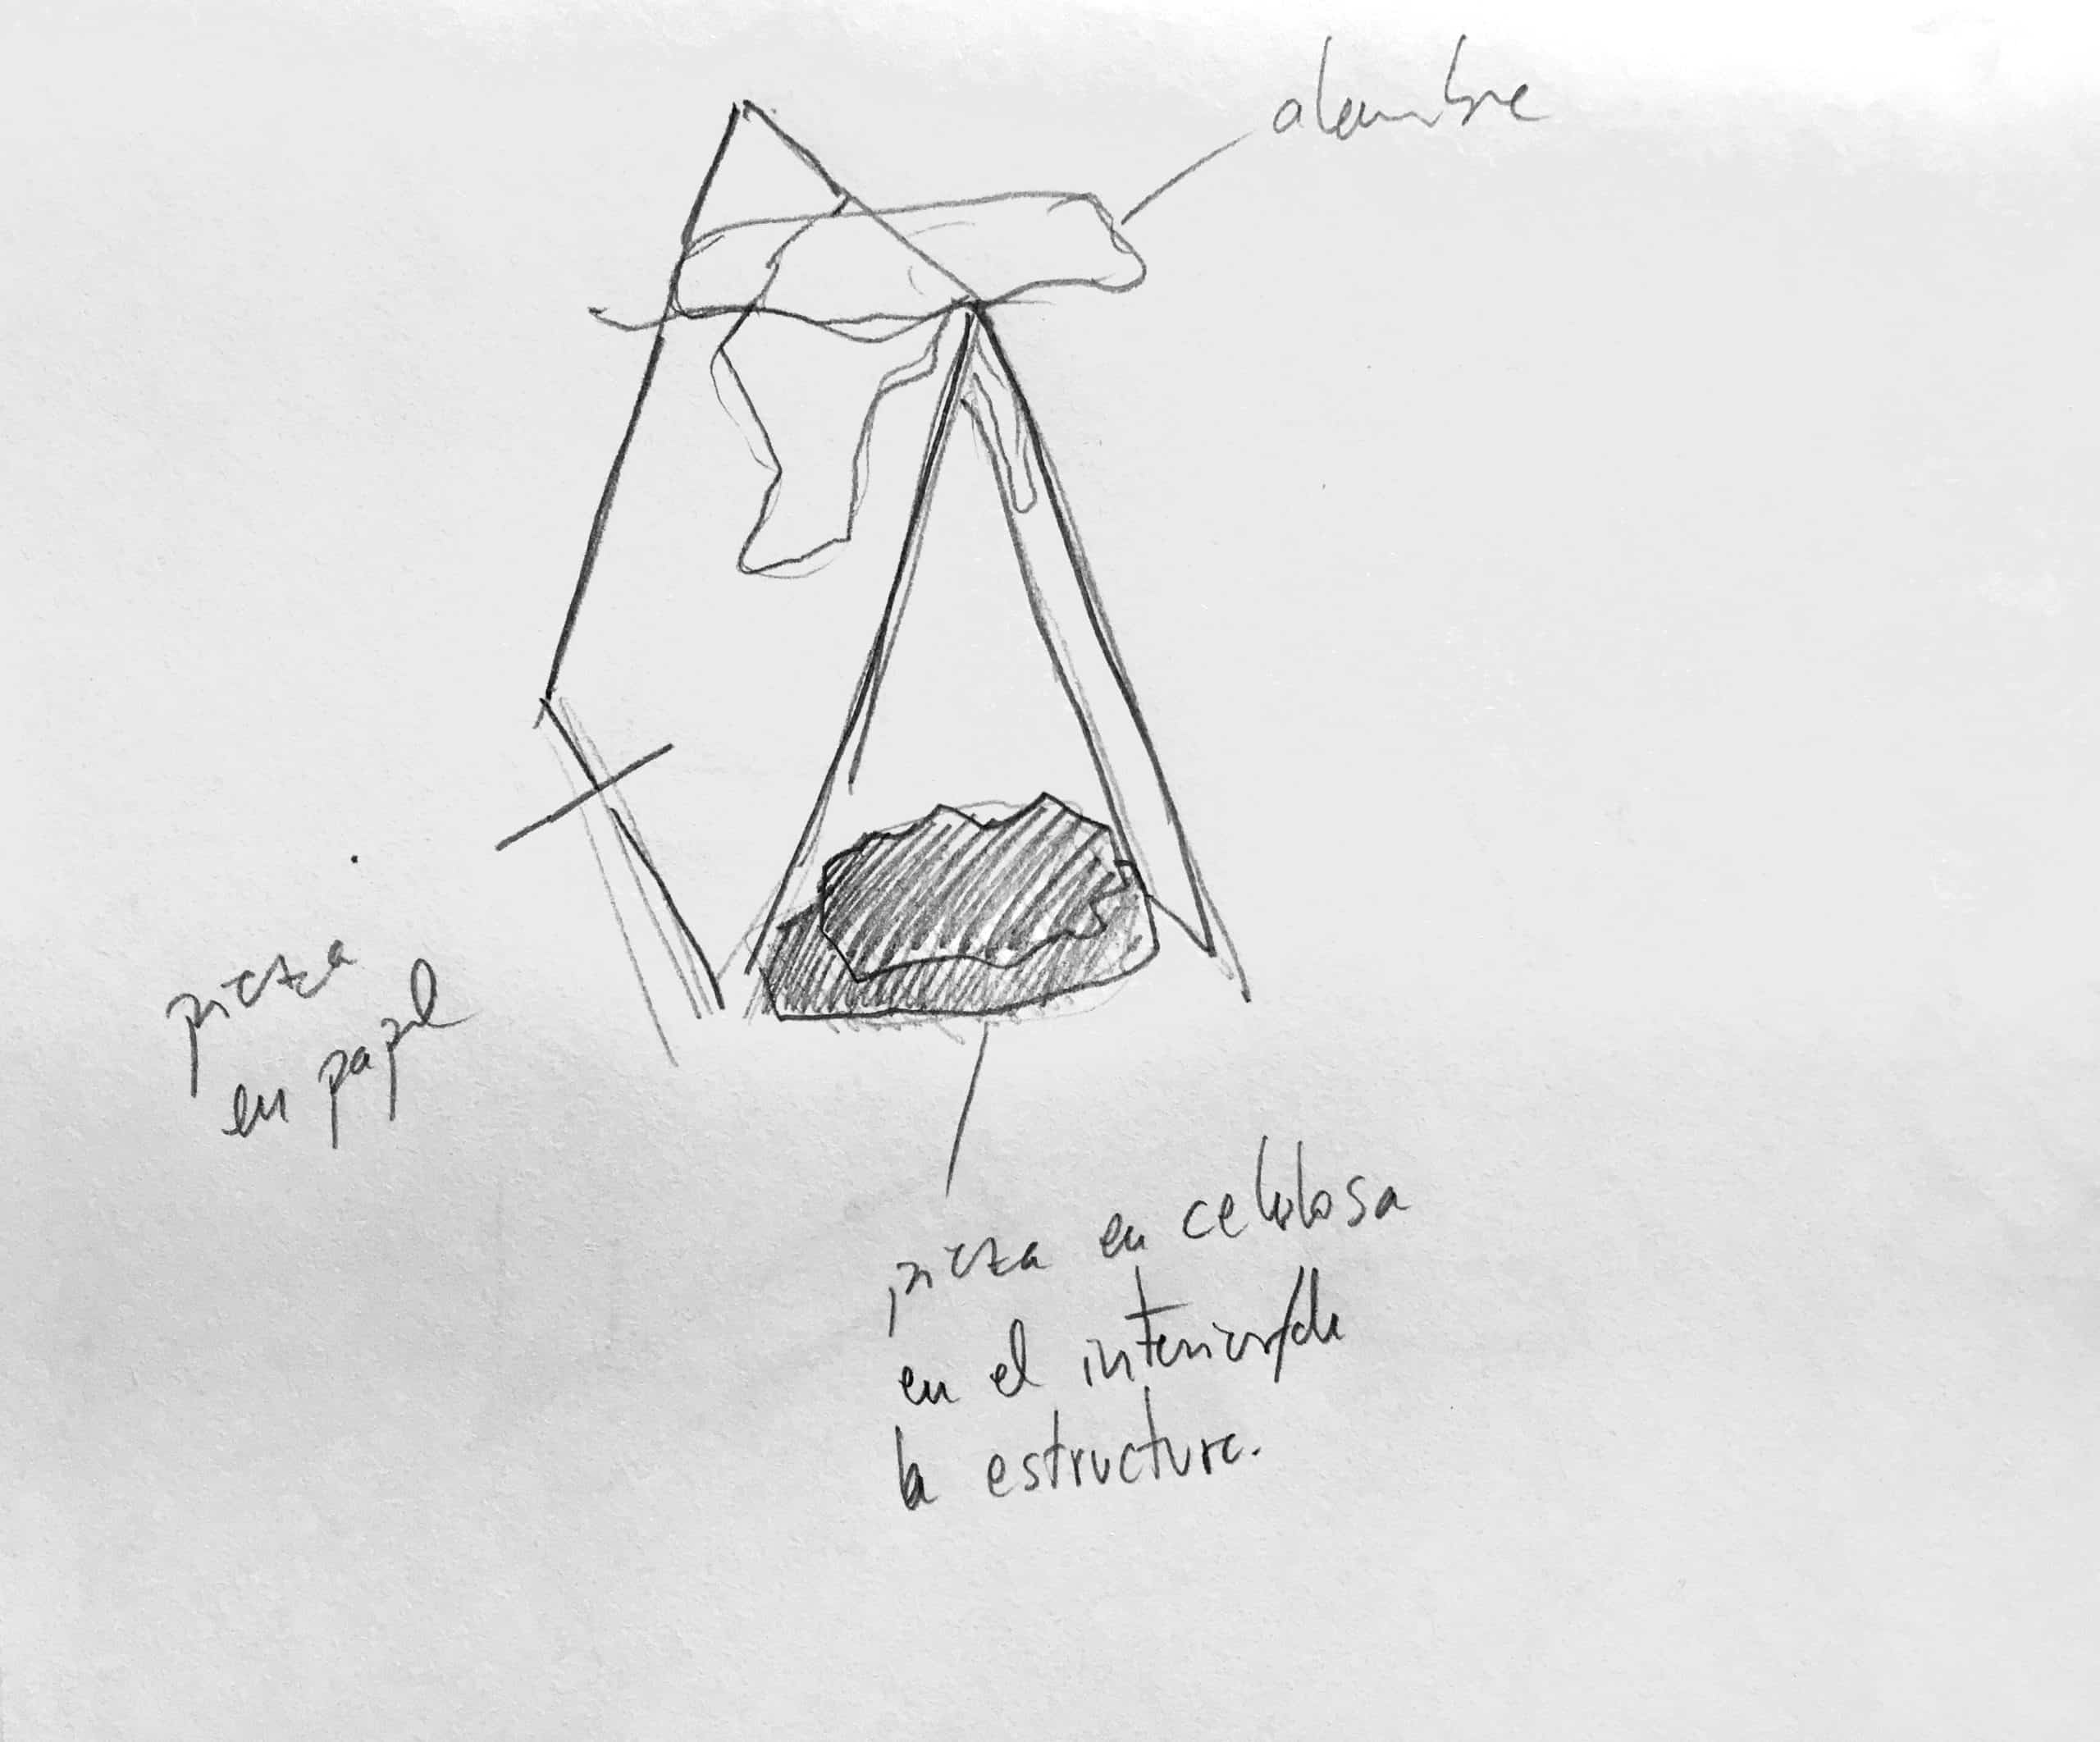 alambre
pieza
en papel
pieza en celulosa
en el interior/de
la estructura.